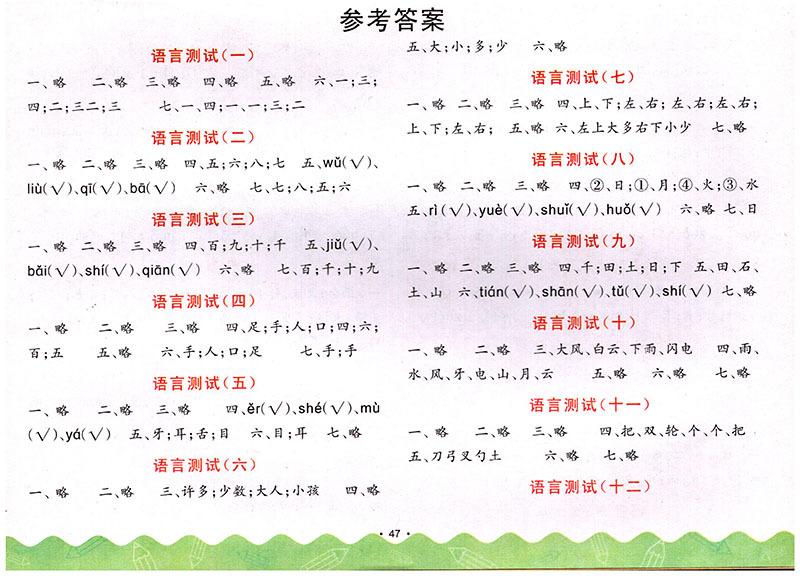 参考答案
语言测试(一)
一、略 二、略 三、略 四、略 五、略 六、一;三;
四;二;三二;三 七、一、四;一、一;三;二
语言测试(二)
一、略 二、略 三、略 四、五;六;八;七 五、wǔ(√)、
liù(√)、qī(√)、bā(√) 六、略 七、七;八;五;六
语言测试(三)
一、略 二、略 三、略 四、百;九;十;千 五、jiǔ(√)、
bǎi(√)、shí(√)、qiān(√) 六、略 七、百;千;十;九
语言测试(四)
一、略 二、略 三、略 四、足;手;人;口;四;六;
百;五 五、略 六、手;人;口;足 七、手;手
语言测试(五)
一、略 二、略 三、略 四、ěr(√)、shé(√)、mù
(√)、yá(√) 五、牙;耳;舌;目 六、目;耳 七、略
语言测试(六)
一、略 二、略 三、许多;少数;大人;小孩 四、略
五、大;小;多;少 六、略
语言测试(七)
一、略 二、略 三、略 四、上、下;左、右; 左、右;左、右;
上、下;左、右; 五、略 六、左上大多右下小少 七、略
语言测试(八)
一、略 二、略 三、略 四、②、日;①、月;④、火;③、水
五、rì(√)、yuè(√)、shuǐ(√)、huǒ(√) 六、略 七、日
语言测试(九)
一、略 二、略 三、略 四、千;田;土;日;下 五、田、石、
土、山 六、tián(√)、shān(√)、tǔ(√)、shí(√) 七、略
语言测试(十)
一、略 二、略 三、大风、白云、下雨、闪电 四、雨、
水、风、牙、电、山、月、云 五、略 六、略 七、略
语言测试(十一)
一、略 二、略 三、略 四、把、双、轮、个、个、把
五、刀弓叉勺土 六、略 七、略
语言测试(十二)
·47·